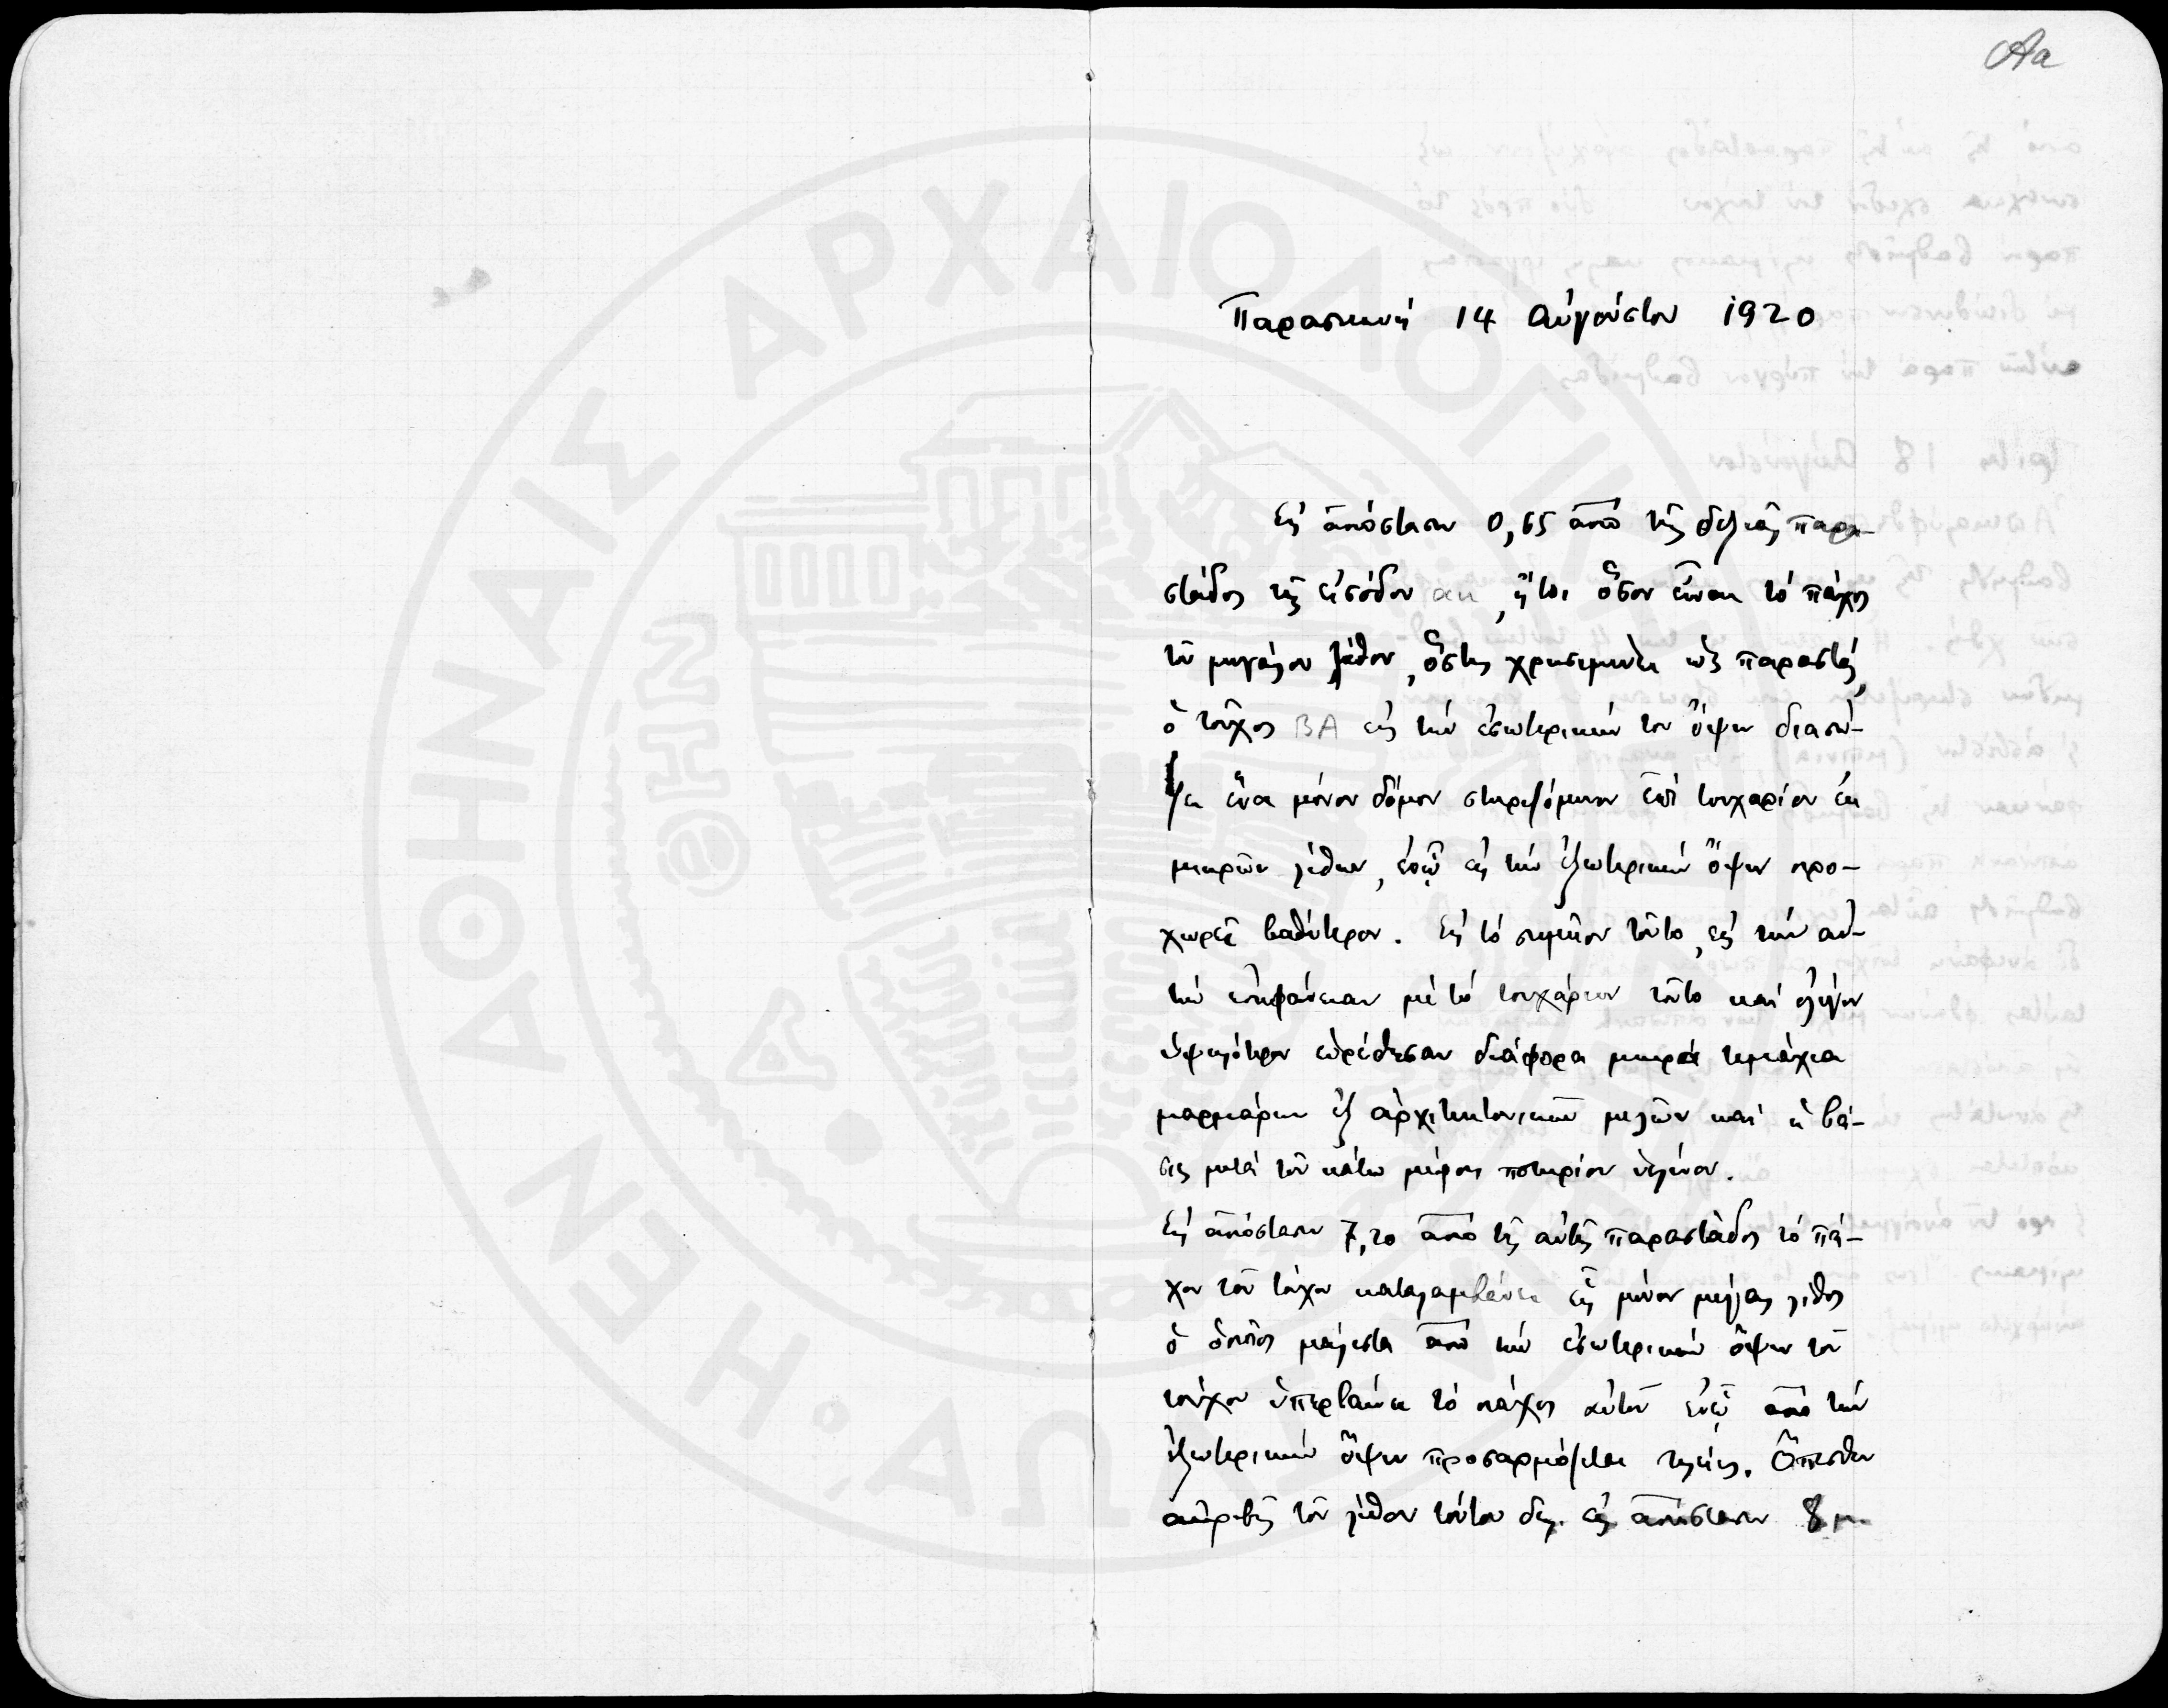 Αα
Παρασκευή 14 Αὐγούστου 1920
Εἰς ἀπόστασιν 0,65 ἀπὸ τῆς δεξιᾶς παρα-
στάδος τῆς εἰσόδου ακ, ἤτοι ὅσον εἶναι τὸ πάχος
τοῦ μεγάλου λίθου, ὅστις χρησιμεύει ὡς παραστάς,
ὁ τοῖχος ΒΑ εἰς τὴν ἐσωτερικήν του ὄψιν διασώ-
ζει ἕνα μόνον δόμον στηριζόμενον ἐπὶ τοιχαρίου ἐκ
μικρῶν λίθων, ἐνῷ εἰς τὴν ἐξωτερικὴν ὄψιν προ-
χωρεῖ βαθύτερον. Εἰς τὸ σημεῖον τοῦτο, εἰς τὴν αὐ-
τὴν ἐπιφάνειαν μὲ τὸ τοιχάριον τοῦτο καὶ ὀλίγον
ὑψηλότερον εὑρέθησαν διάφορα μικρὰ τεμάχια
μαρμάρου ἐξ ἀρχιτεκτονικῶν μελῶν καὶ ἡ βά-
σις μετὰ τοῦ κάτω μέρους ποτηρίου ὑαλίνου.
Εἰς ἀπόστασιν 7,20 ἀπὸ τῆς αὐτῆς παραστάδος τὸ πά-
χος τοῦ τοίχου καταλαμβάνει εἷς μόνον μέγας λίθος
ὁ ὁποῖος μάλιστα ἀπὸ τὴν ἐσωτερικὴν ὄψιν τοῦ
τοίχου ὑπερβαίνει τὸ πάχος αὐτοῦ ἐνῷ ἀπὸ τὴν
ἐξωτερικὴν ὄψιν προσαρμόζεται τελείως. Ὄπισθεν
ἀκριβῶς τοῦ λίθου τούτου δηλ. εἰς ἀπόστασιν 8 μ.
ΗΕΝ ΑΘΗΝΑΙΣ ΑΡΧΑΙΟΛΟΓΙΚΗ